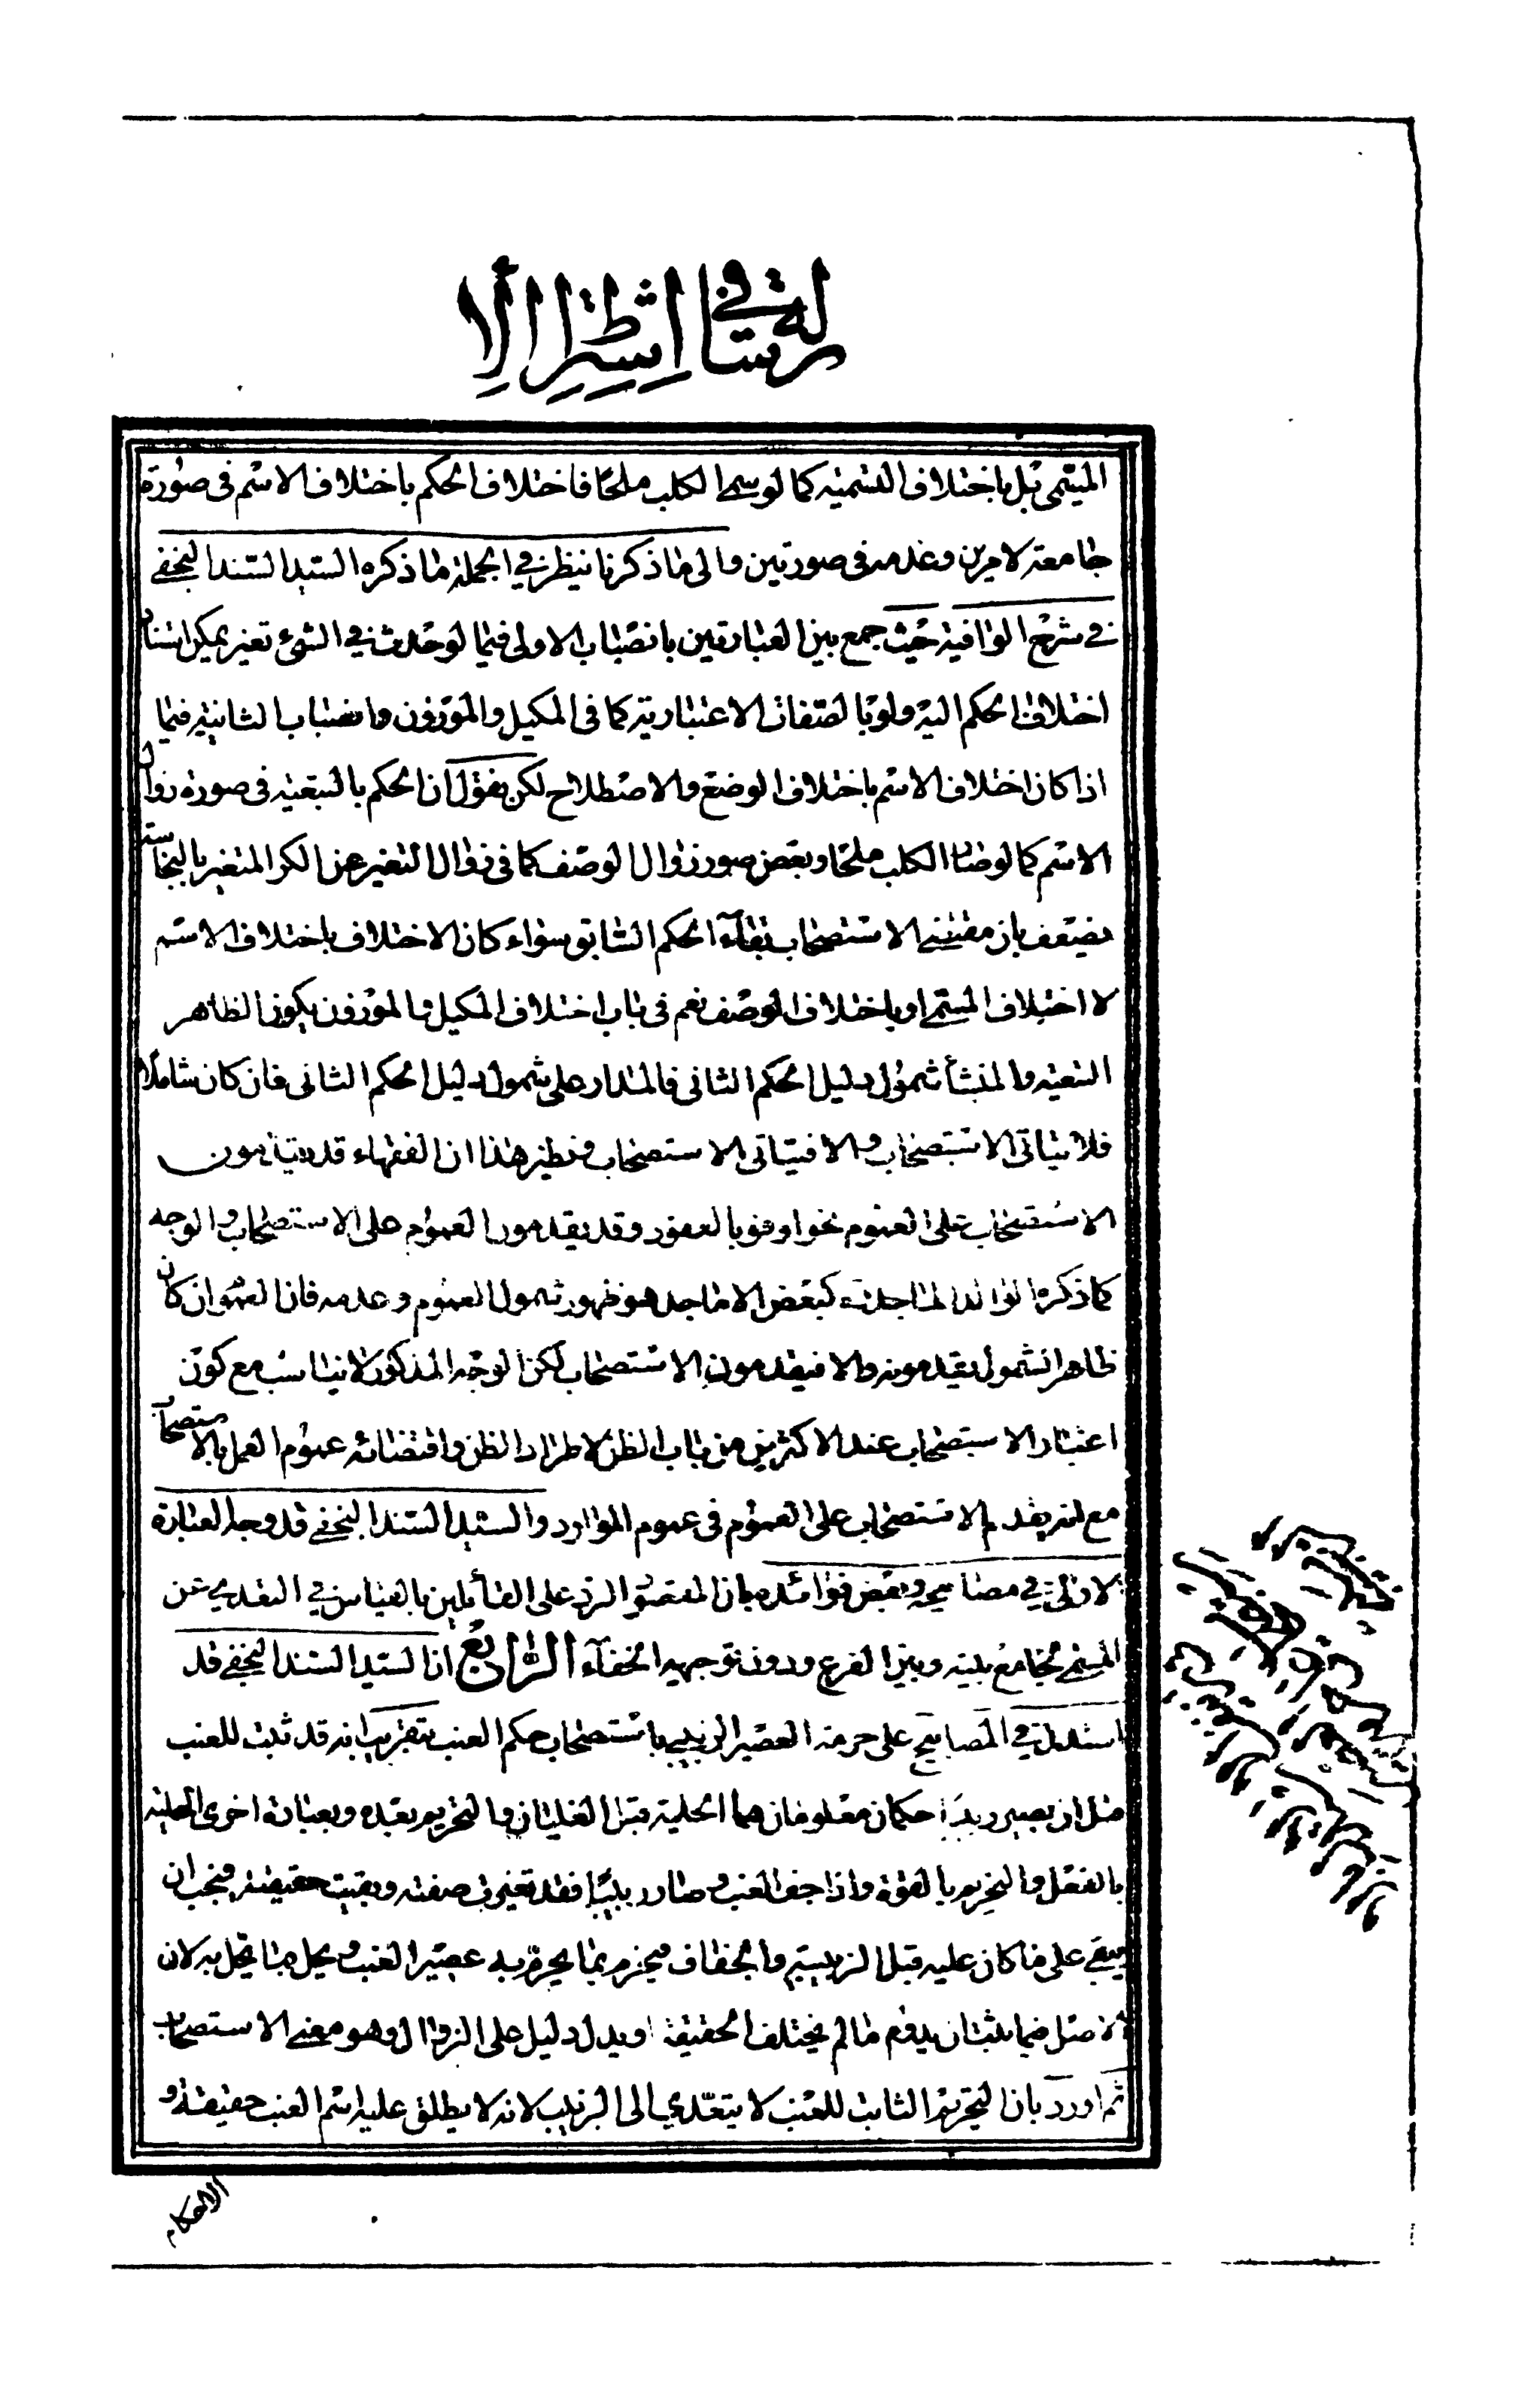 رسالة في اشتراط الا
المسمى بل باختلاف التسمية كما لو سمى الكلب ملحا فاختلاف الحكم باختلاف الاسم فى صورة
جامعة لامرين وعدمه فى صورتين والى ما ذكرنا ينظر في الجملة ما ذكره السيد السند النجفي
في شرح الوافية حيث جمع بين العبارتين بانصباب الاولى فيما لو حدث في الشئ تغير يمكن استناد
اختلاف الحكم اليه ولو بالصفات الاعتبارية كما فى المكيل والموزون وانصباب الثانية فيما
اذا كان اختلاف الاسم باختلاف الوضع والاصطلاح لكن نقول ان الحكم بالتبعية فى صورة زوال
الاسم كما لو صار الكلب ملحا وبعض صور زوال الوصف كما فى زوال التغير عن الكر المتغير بالنجاسة
يضعف بان مقتضى الاستصحاب بقاء الحكم السابق سواء كان الاختلاف باختلاف الاسم
لاختلاف المسمى او باختلاف الوصف نعم فى باب اختلاف المكيل والموزون يكون الظاهر
التبعية والمنشأ شمول دليل الحكم الثانى فالمدار على شمول دليل الحكم الثانى فان كان شاملا
فلا يتاتى الاستصحاب والا فيتاتى الاستصحاب ونظير هذا ان الفقهاء قد يقدمون
الاستصحاب على العموم نحو اوفوا بالعقود وقد يقدمون العموم على الاستصحاب والوجه
كما ذكره الوالد الماجد كبعض الاماجد هو ظهور شمول العموم وعدمه فان العموم ان كان
ظاهر الشمول يقدمونه والا فيقدمون الاستصحاب لكن الوجه المذكور لا يناسب مع كون
اعتبار الاستصحاب عند الاكثرين من باب الظن لاطراد الظن واقتضائه عموم العمل بالاستصحاب
مع تقديم الاستصحاب على العموم فى عموم الموارد والسيد السند النجفي قد وجه العبارة
الاولى في مصابيحه وبعض فوائده بان المقصود الرد على القائلين بالقياس في التعدي عن
المسمى بجامع بينه وبين الفرع ودون توجيهه الخفاء الرابع ان السيد السند النجفي قد
استدل في المصابيح على حرمة العصير الزبيبي باستصحاب حكم العنب بتقريب انه قد ثبت للعنب
قبل ان يصير زبيبا حكمان معلومان هما الحلية قبل الغليان والتحريم بعده وبعبارة اخرى الحلية
بالفعل والتحريم بالقوة واذا جف العنب وصار زبيبا فقد تغيرت صفته وبقيت حقيقته فيجب ان
يبقى على ما كان عليه قبل الزبيبية والجفاف فيحرم بما يحرم به عصير العنب ويحل بما يحل به لان
الاصل فيما يثبت ان يدوم ما لم يختلف الحقيقة او يدل دليل على الزوال وهو معنى الاستصحاب
ثم اورد بان التحريم الثابت للعنب لا يتعدي الى الزبيب لانه لا يطلق عليه اسم العنب حقيقة و
الاحكام